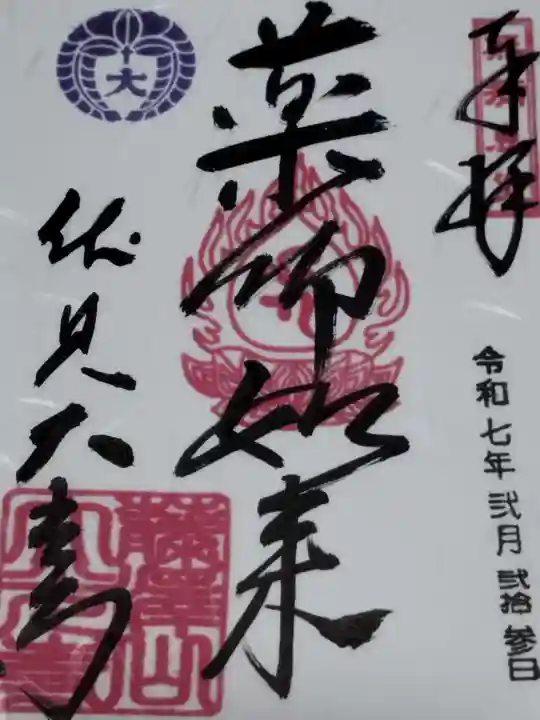 奉拝
令和七年弐月弐拾参日
薬師如来
大
伏見大寺
藤葉山